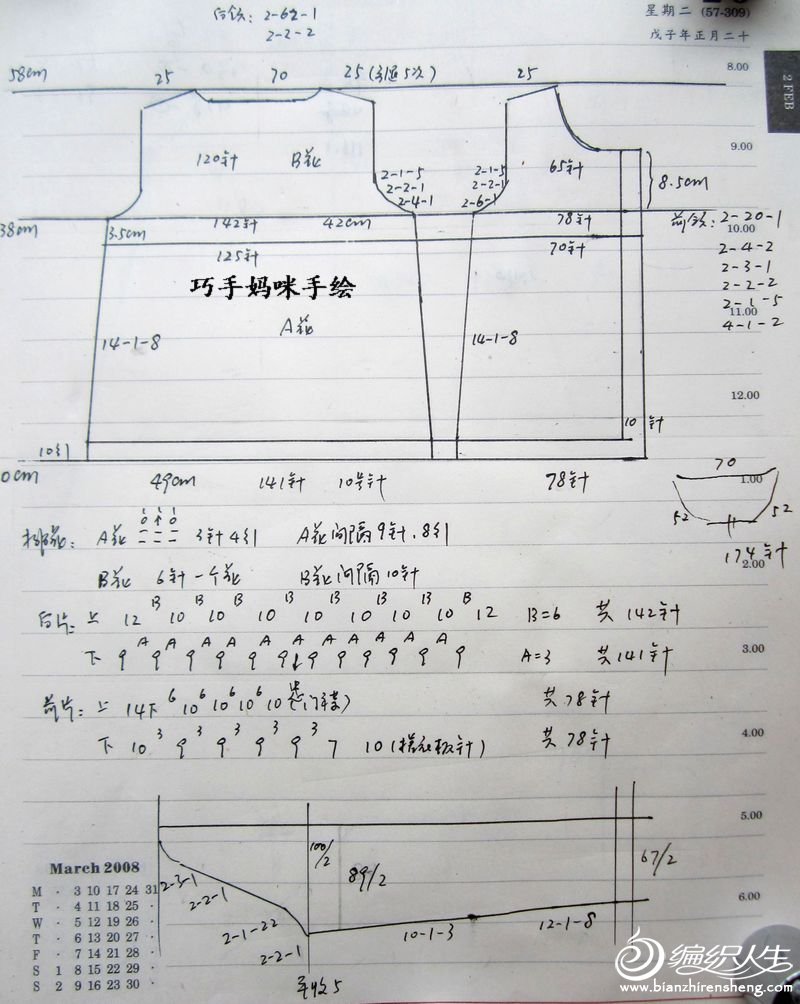 后领: 2-62-1
2-2-2
星期二 (57-309)
戊子年正月二十
8.00
2 FEB
58cm 25 70 25 (引退5次) 25
9.00
120针 B花 65针
2-1-5
2-2-1
2-4-1
2-1-5
2-2-1
2-6-1
8.5cm
38cm 3.5cm 142针 42cm 78针
前领: 2-20-1
2-4-2
2-3-1
2-2-2
2-1-5
4-1-2
10.00
125针 70针
巧手妈咪手绘
A花
11.00
14-1-8 14-1-8
12.00
10针
10引
0cm 49cm 141针 10号针 78针
70
1.00
52 52
174针
排花: A花 3针4引 A花间隔9针.8引
B花 6针一个花 B花间隔10针
2.00
后片: 上 12 B 10 B 10 B 10 B 10 B 10 B 10 B 12 B=6 共142针
下 9 A 9 A 9 A 9 A 9 A 9 A 9 A 9 A 9 A 9 A 9 A 9 A=3 共141针
3.00
前片: 上 14下 6 10 6 10 6 10 6 10 (门襟) 共78针
下 10 3 9 3 9 3 9 3 9 3 7 10 (搓衣板针) 共78针
4.00
5.00
100/2 89/2 67/2
2-3-1
2-2-1
2-1-22
2-2-1
平收5
10-1-3 12-1-8
6.00
March 2008
M · 3 10 17 24 31
T · 4 11 18 25 ·
W · 5 12 19 26 ·
T · 6 13 20 27 ·
F · 7 14 21 28 ·
S 1 8 15 22 29 ·
S 2 9 16 23 30 ·
编织人生
www.bianzhirensheng.com